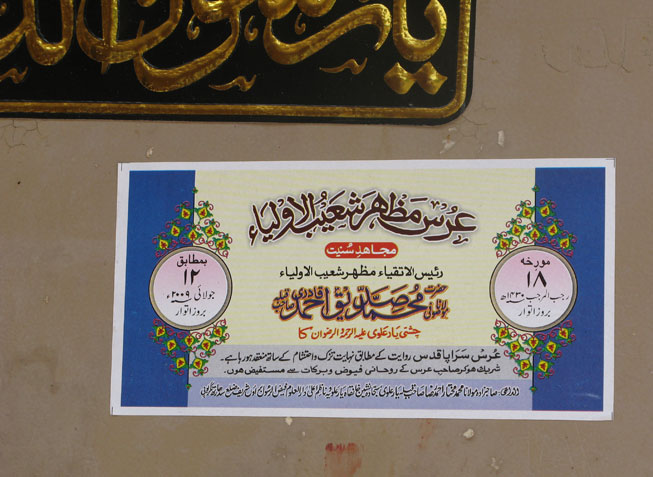 یا رسول اللہ
عرس مظہر شعیب الاولیاء
مجاہد سنیت
رئیس الاتقیاء مظہر شعیب الاولیاء
حضرت مولانا صوفی محمد صدیق احمد قادری صاحب قبلہ
چشتی یار علوی علیہ الرحمۃ والرضوان کا
مورخہ
۱۸
رجب المرجب ۱۴۳۰ھ
بروز اتوار
بمطابق
۱۲
جولائی ۲۰۰۹ء
بروز اتوار
عرس سراپا قدس روایت کے مطابق نہایت تزک و احتشام کے ساتھ منعقد ہو رہا ہے۔
شریک ہو کر صاحب عرس کے روحانی فیوض و برکات سے مستفیض ہوں۔
صاحبزادہ مولانا محمد